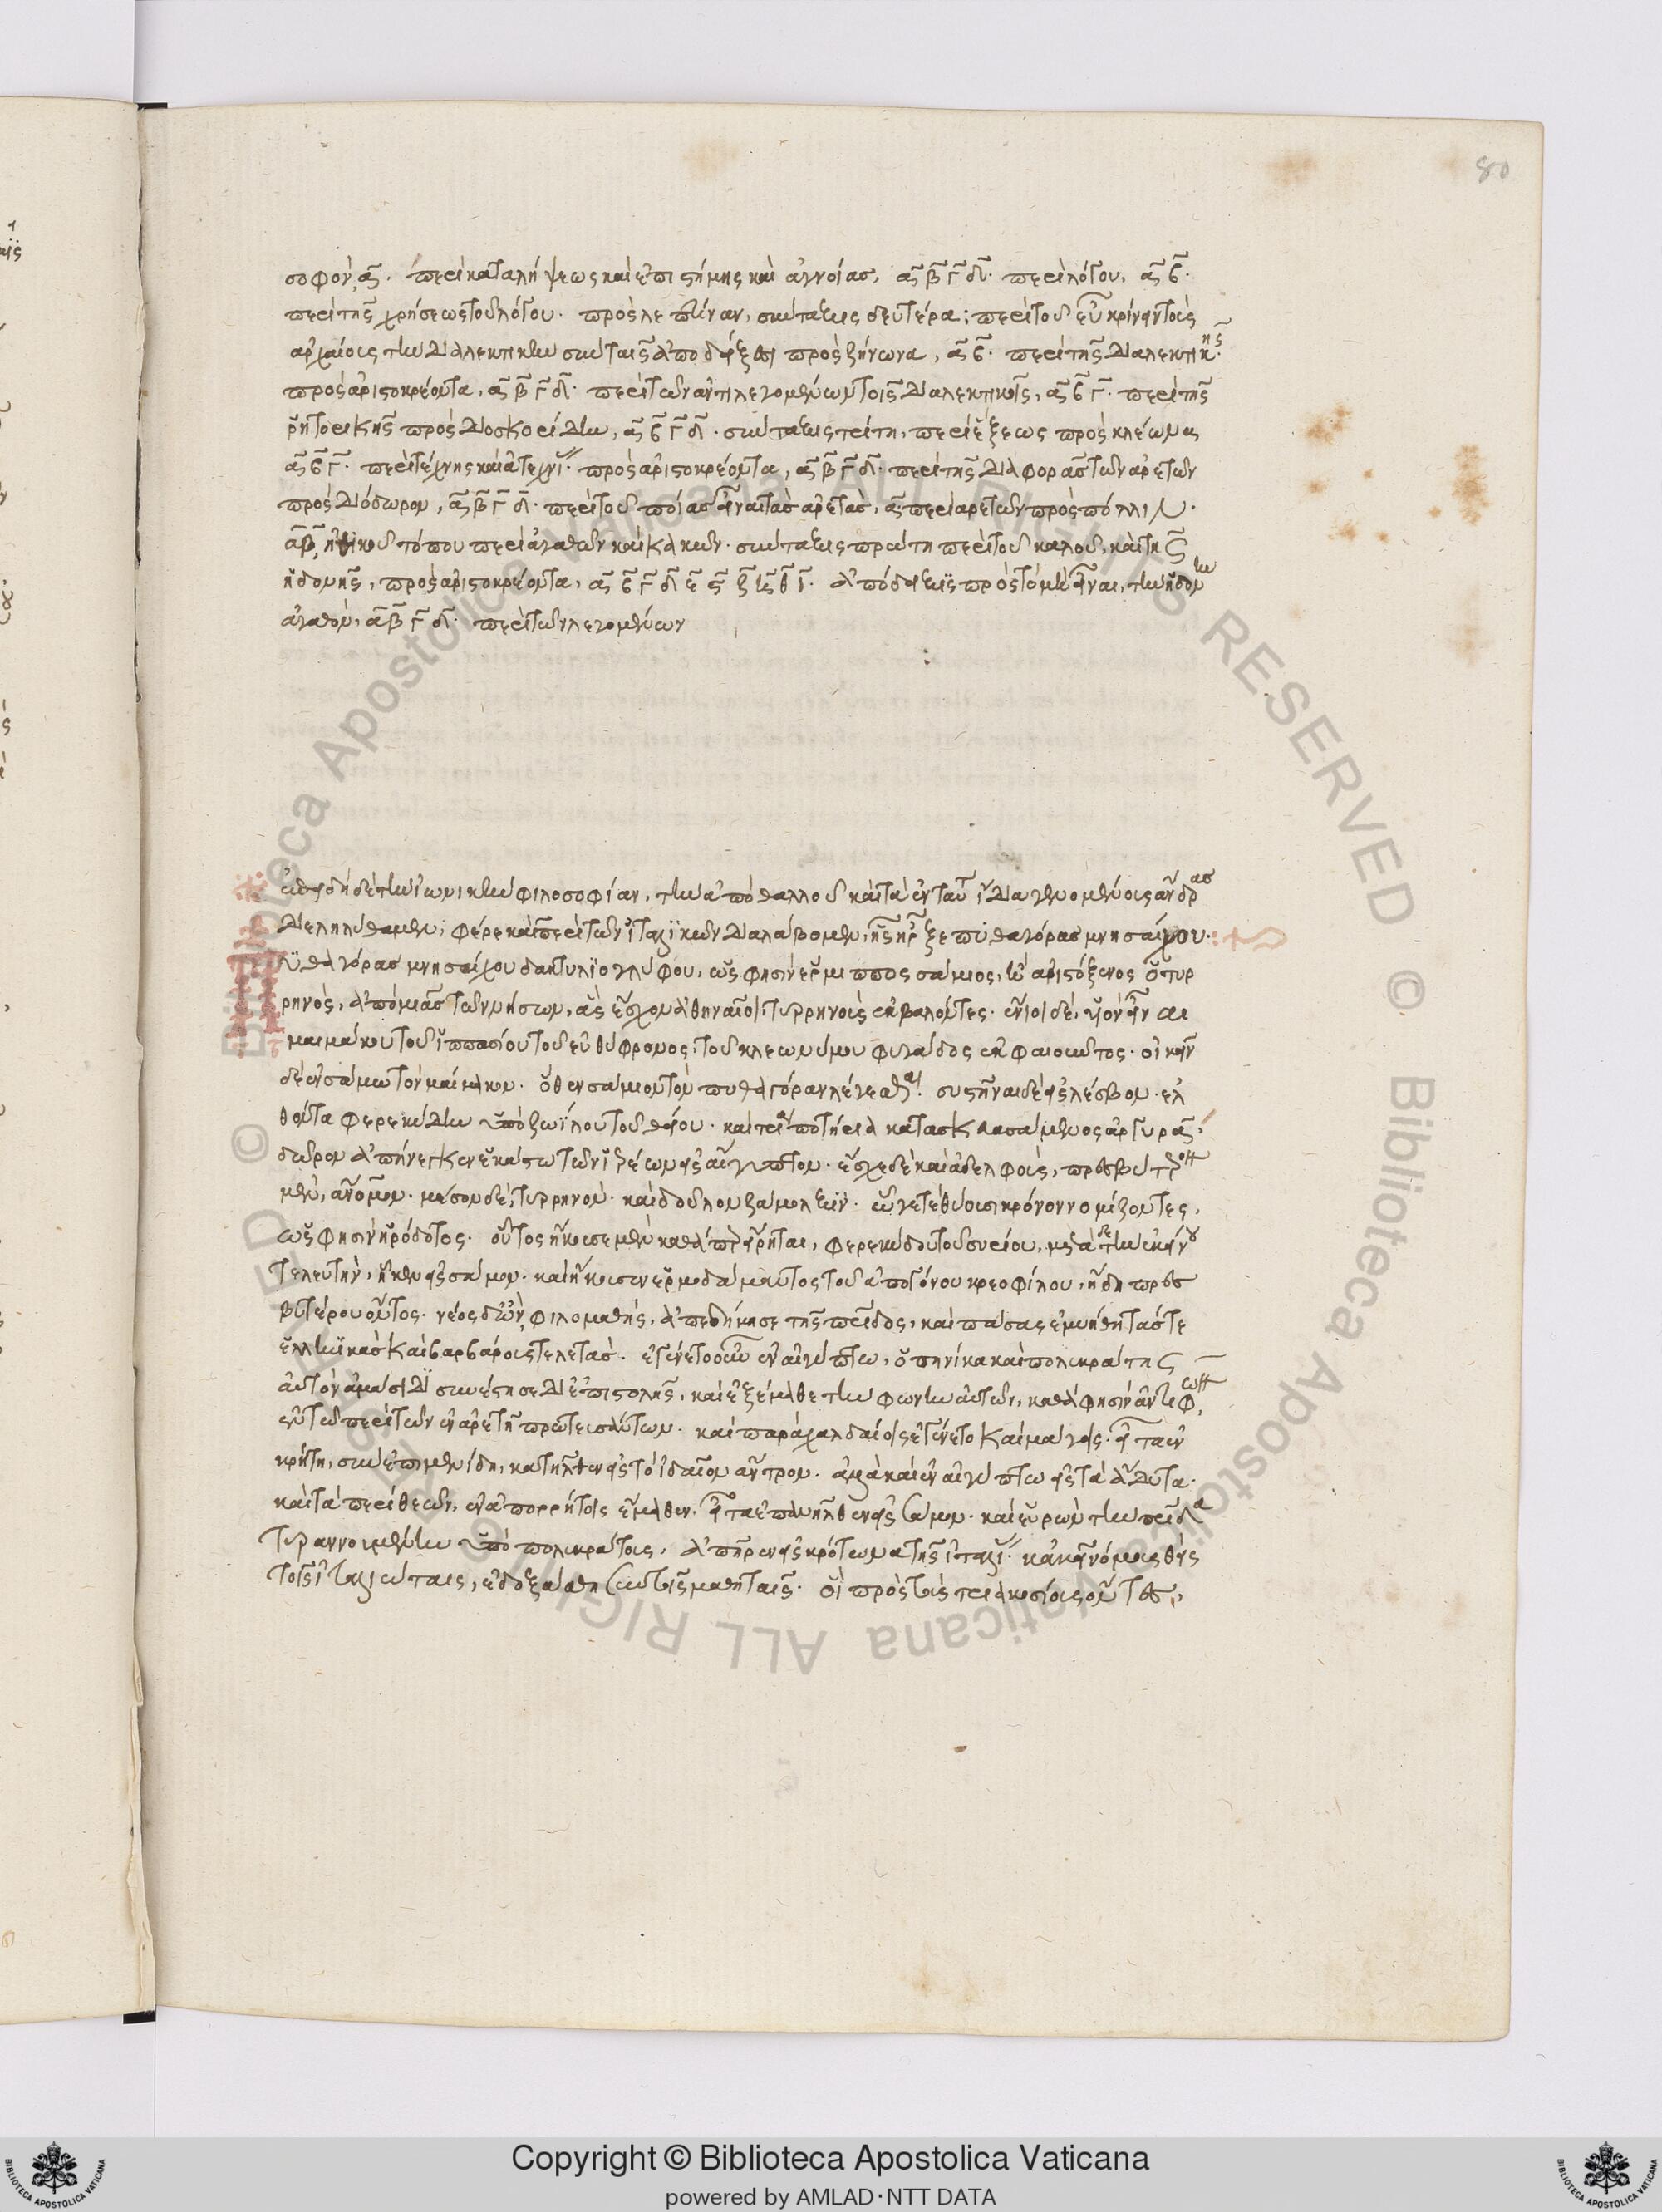 80
σοφόν, α̅. περὶ καταλήψεως καὶ ἐπιστήμης καὶ ἀγνοίας, α̅ β̅ γ̅ δ̅. περὶ λόγου, α̅ β̅.
περὶ τῆς χρήσεως τοῦ λόγου. πρὸς λεπτίναν, σύνταξις δευτέρα: περὶ τοῦ ἐγκρίνειν τοὺς
ἀρχαίους τὴν διαλεκτικὴν σὺν ταῖς ἀποδείξεσι πρὸς ζήνωνα, α̅ β̅. περὶ τῆς διαλεκτικῆς.
πρὸς ἀριστοκρέοντα, α̅ β̅ γ̅ δ̅. περὶ τῶν ἀντιλεγομένων τοῖς διαλεκτικοῖς, α̅ β̅ γ̅. περὶ τῆς
ῥητορικῆς πρὸς διοσκορίδην, α̅ β̅ γ̅ δ̅. σύνταξις τρίτη, περὶ ἕξεως πρὸς κλέωνα
α̅ β̅ γ̅. περὶ τέχνης καὶ ἀτεχνί. πρὸς ἀριστοκρέοντα, α̅ β̅ γ̅ δ̅. περὶ τῆς διαφορᾶς τῶν ἀρετῶν
πρὸς διόδωρον, α̅ β̅ γ̅ δ̅. περὶ τοῦ ποιὰς εἶναι τὰς ἀρετάς, α̅ περὶ ἀρετῶν πρὸς πόλλιν.
α̅ β̅, ἠθικοῦ τόπου περὶ ἀγαθῶν καὶ κακῶν. σύνταξις πρώτη περὶ τοῦ καλοῦ, καὶ τῆς
ἡδονῆς, πρὸς ἀριστοκρέοντα, α̅ β̅ γ̅ δ̅ ε̅ ϛ̅ ζ̅ η̅ θ̅ ι̅. ἀπόδειξις πρὸς τὸ μὴ εἶναι, τὴν ἡδονὴν
ἀγαθόν, α̅ β̅ γ̅ δ̅. περὶ τῶν λεγομένων
ἐπειδὴ δὲ τὴν ἰωνικὴν φιλοσοφίαν, τὴν ἀπὸ θαλλοῦ καὶ τὰ ἐν ταύτῃ διαγενομένους ἄνδρας
διεληλύθαμεν, φέρε καὶ περὶ τῶν ἰταλϊκῶν διαλάβομεν, ἧς ἦρξε πυθαγόρας μνησάρχου.
ϋθαγόρας μνησάρχου δακτυλϊογλύφου, ὥς φησιν ἕρμιππος σάμιος, ἢ ἀριστόξενος ὁ τυρ
ρηνός, ἀπὸ μιᾶς τῶν νήσων, ἃς ἔσχον ἀθηναῖοι, τυρρηνοὺς ἐκβαλόντες. ἔνιοι δέ, υἱὸν εἶναι
μαιμάκου τοῦ ἱππασίου τοῦ εὐθύφρονος, τοῦ κλεωνύμου φυγάδος ἐκ φλιοῦντος. οἰκεῖν
δὲ ἐν σάμω τὸν μαίμακον. ὅθεν σάμιον τὸν πυθαγόραν λέγεσθαι. συστῆναι δὲ εἰς λέσβον. ἐλ
θόντα φερεκύδην ὑπὸ ζωΐλου τοῦ θείου. καὶ τρία ποτήρια κατασκλασάμενος ἀργυρᾶ,
δῶρον ἀπήνεγκεν ἑκάστω τῶν ἱερέων εἰς αἴγυπτον. ἔσχε δὲ καὶ ἀδελφούς, πρεσβύτερον
μέν, ἄνομον. μέσον δέ, τυρρηνόν. καὶ δοῦλον ζάμολξιν. ὧ γέτε θύουσι κρόνον νομίζοντες,
ὥς φησιν ἡρόδοτος. οὗτος ἤκουσε μὲν καθάπερ εἴρηται, φερεκύδου τοῦ συρίου, μετὰ δὲ τὴν ἐκείνου
τελευτήν, ἧκεν εἰς σάμον. καὶ ἤκουσεν ἑρμοδάμαντος τοῦ ἀπογόνου κρεοφίλου, ἤδη πρεσ
βυτέρου ὄντος. νέος δ' ὤν, φιλομαθής, ἀπεδήμησε τῆς πατρίδος, καὶ πάσας ἐμυήθη τάς τε
ἑλληνϊκὰς καὶ βαρβάρους τελετάς. ἐγένετο οὖν ἐν αἰγύπτω, ὁπηνίκα καὶ πολυκράτης
αὐτὸν ἀμάσιδϊ συνέστησε δι' ἐπιστολῆς, καὶ ἐξέμαθε τὴν φωνὴν αὐτῶν, καθά φησιν ἀντιφῶν,
ἐν τῶ περὶ τῶν ἐν ἀρετῇ πρωτευσάντων. καὶ παρὰ χαλδαίοις ἐγένετο καὶ μάγοις. εἶτα ἐν
κρήτῃ, σὺν ἐπιμενίδῃ, κατῆλθεν εἰς τὸ ἰδαῖον ἄντρον. ἀλλὰ καὶ ἐν αἰγύπτω εἰς τὰ ἄδυτα.
καὶ τὰ περὶ θεῶν, ἐν ἀπορρήτοις ἔμαθεν. εἶτα ἐπανῆλθεν εἰς σάμον. καὶ εὑρὼν τὴν πατρίδα
τυραννουμένην ὑπὸ πολυκράτους, ἀπῆρεν εἰς κρότωνα τῆς ἰταλί. κἀκεῖ νόμους θεὶς
τοῖς ἰταλιώταις, ἐδοξάσθη σὺν τοῖς μαθηταῖς. οἳ πρὸς τοὺς τριακοσίους ὄντες,
Copyright © Biblioteca Apostolica Vaticana
powered by AMLAD·NTT DATA